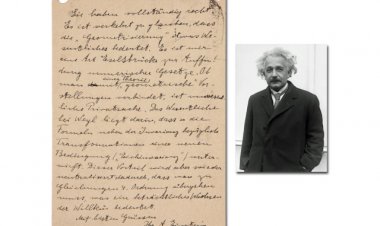 Sie haben vollständig recht.
Es ist verkehrt zu glauben, dass
die "Geometrisierung" etwas We-
sentliches bedeutet. Es ist nur
eine Art Eselsbrücke zur Auffin-
dung numerischer Gesetze. Ob
man eine Theorie geometrische Vor-
stellungen verbindet, ist
Privatsache. Das Wesentliche
bei Weyl liegt darin, dass er die
Formeln neben der Invarianz bezüglich
Transformationen einer neuen
Bedingung unter-
wirft. Dieser Vorteil wird aber wieder
neutralisiert dadurch, dass man zu
Gleichungen 4. Ordnung übergehen
muss, was eine
der Willkür bedeutet.
Mit besten Grüssen
Ihr A. Einstein